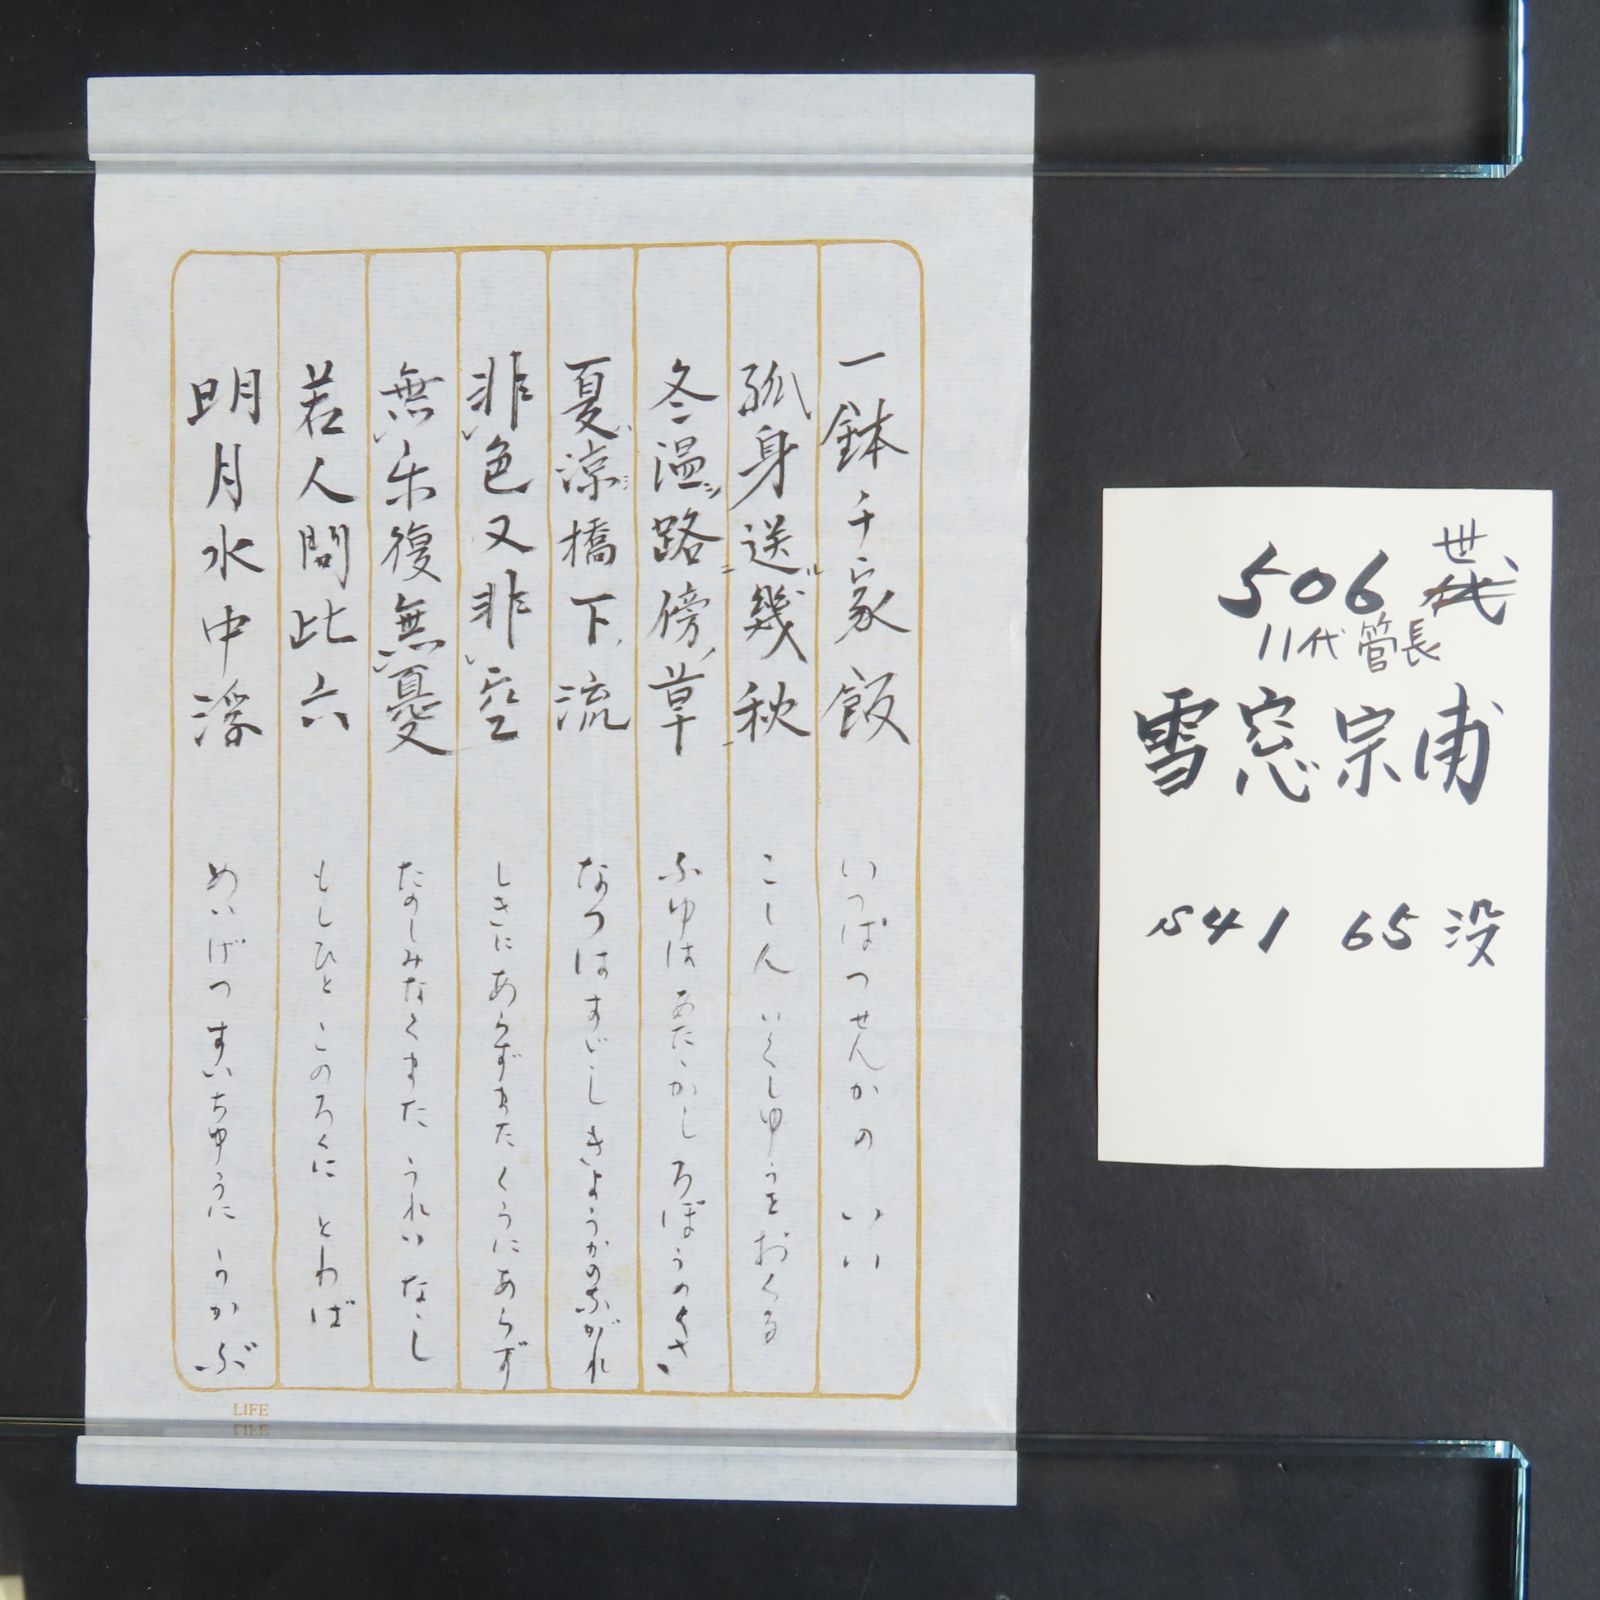 一鉢千家飯　いっぱつせんかの　いい
孤身送幾秋　こしん　いくしゆうをおくる
冬温路傍草　ふゆは　あたゝかし　ろぼうのくさ
夏涼橋下流　なつは　すゞし　きようかのながれ
非色又非空　しきに　あらず　また　くうにあらず
無楽復無憂　たのしみなく　また　うれい　なし
若人問此六　もしひと　このろくに　とわば
明月水中浮　めいげつ　すいちゆうに　うかぶ
LIFE
506世
11代管長
雪窓宗甫
S41　65没